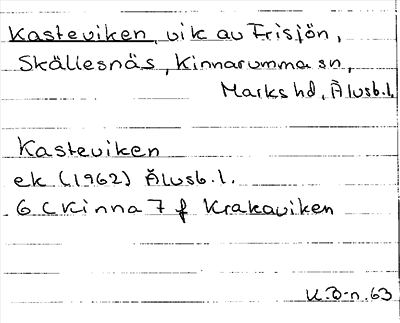 Kasteviken, vik av Frisjön,
Skällesnäs, Kinnarumma sn,
Marks hd, Älvsb.l.
Kasteviken
ek (1962) Älvsb.l.
6 C Kinna 7 f Krakaviken
K.D-n.63